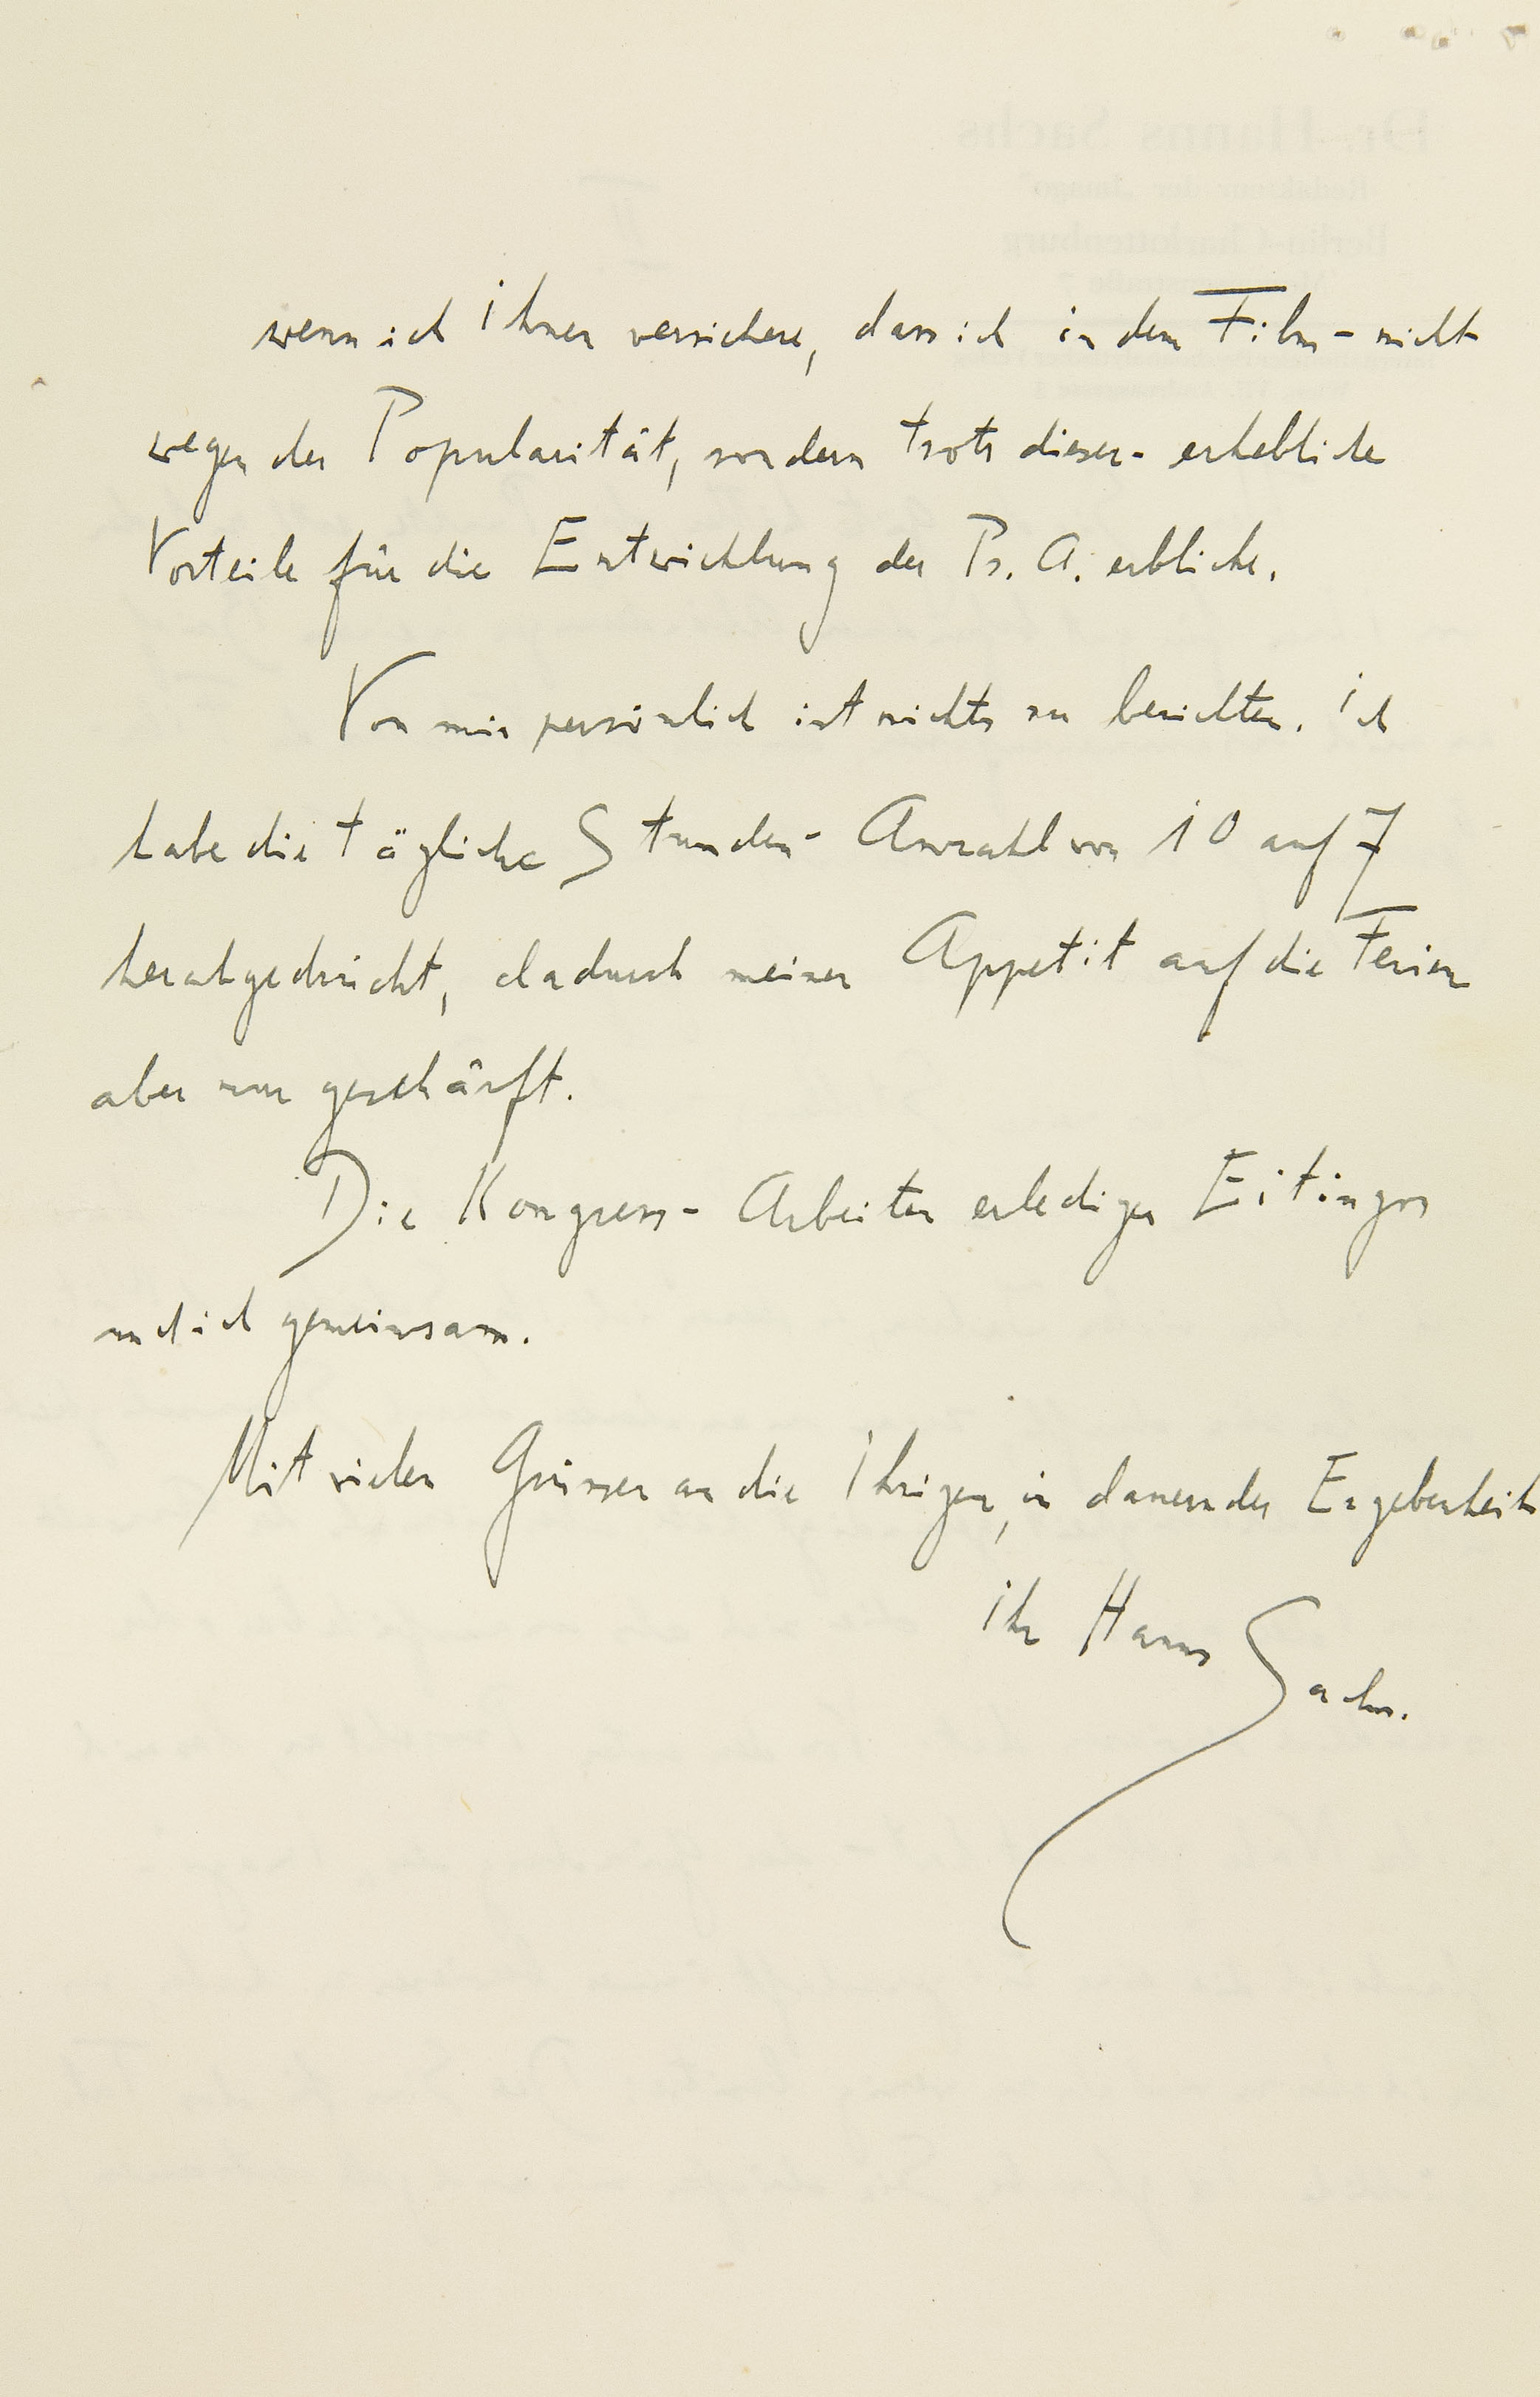 wenn ich Ihnen versichere, dass ich in dem Film - nicht
wegen der Popularität, sondern trotz dieser - erhebliche
Vorteile für die Entwicklung der Ps. A. erblicke.
Von mir persönlich ist nichts zu berichten. Ich
habe die tägliche Stunden-Anzahl von 10 auf 7
herabgedrückt, dadurch meinen Appetit auf die Ferien
aber nur geschärft.
Die Kongress-Arbeiten erledigen Eitingon
und ich gemeinsam.
Mit vielen Grüssen an die Ihrigen, in dauernder Ergebenheit
Ihr Hanns Sachs.